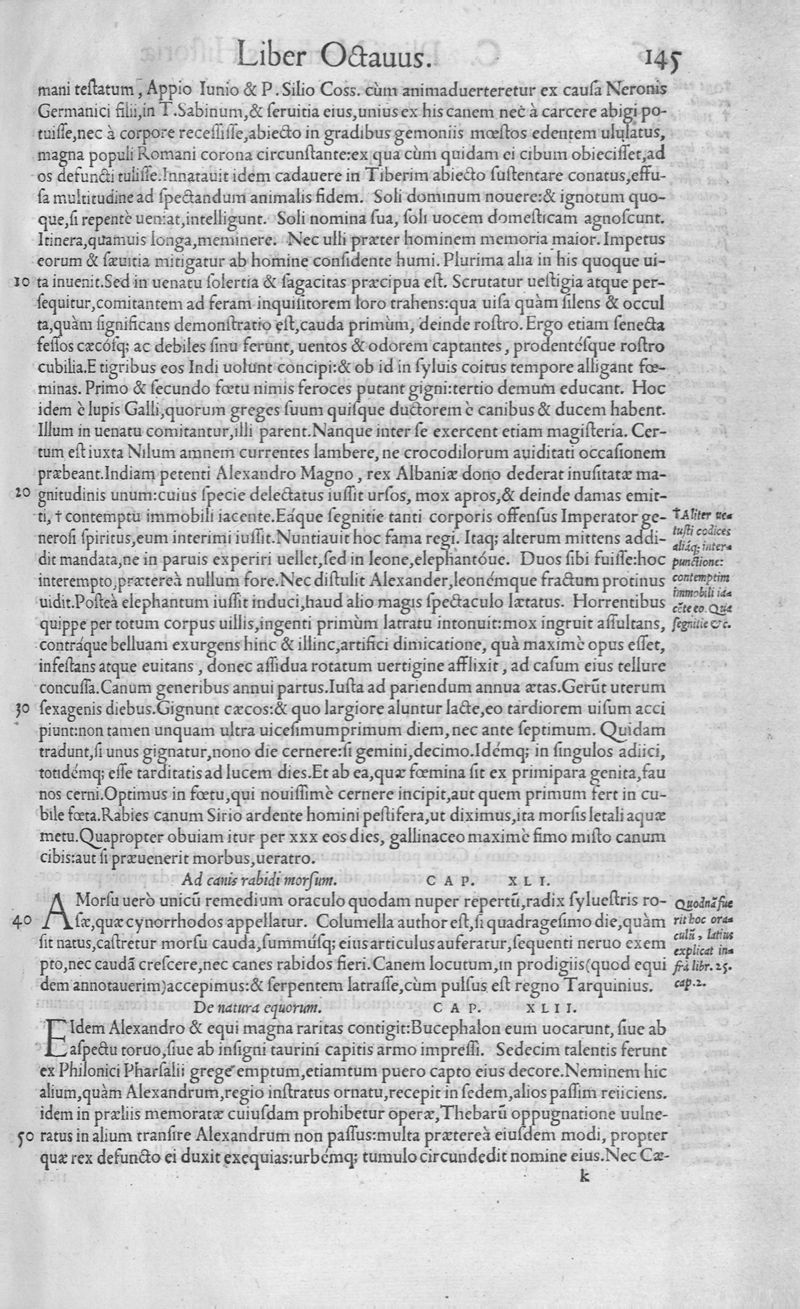 Liber Octauus. 145
mani testatum, Appio Iunio & P. Silio Coss. cùm animaduerteretur ex causa Neronis
Germanici filii,in T.Sabinum,& seruitia eius,unius ex his canem nec à carcere abigi po-
tuisse,nec à corpore recessisse,abiecto in gradibus gemoniis mœstos edentem ululatus,
magna populi Romani corona circunstante:ex qua cùm quidam ei cibum obiecisset,ad
os defuncti tulisse.Innatauit idem cadauere in Tiberim abiecto sustentare conatus,effu-
sa multitudine ad spectandum animalis fidem. Soli dominum nouere:& ignotum quo-
que,si repentè ueniat,intelligunt. Soli nomina sua, soli uocem domesticam agnoscunt.
Itinera,quamuis longa,meminere. Nec ulli præter hominem memoria maior. Impetus
eorum & sæuitia mitigatur ab homine considente humi. Plurima alia in his quoque ui-
10 ta inuenit.Sed in uenatu solertia & sagacitas præcipua est. Scrutatur uestigia atque per-
sequitur,comitantem ad feram inquisitorem loro trahens:qua uisa quàm silens & occul
ta,quàm significans demonstratio est,cauda primùm, deinde rostro. Ergo etiam senecta
fessos cæcósq; ac debiles sinu ferunt, uentos & odorem captantes, prodentésque rostro
cubilia.E tigribus eos Indi uolunt concipi:& ob id in syluis coitus tempore alligant fœ-
minas. Primo & secundo fœtu nimis feroces putant gigni:tertio demum educant. Hoc
idem è lupis Galli,quorum greges suum quisque ductorem è canibus & ducem habent.
Illum in uenatu comitantur,illi parent.Nanque inter se exercent etiam magisteria. Cer-
tum est iuxta Nilum amnem currentes lambere, ne crocodilorum auiditati occasionem
præbeant.Indiam petenti Alexandro Magno, rex Albaniæ dono dederat inusitatæ ma-
20 gnitudinis unum:cuius specie delectatus iussit ursos, mox apros,& deinde damas emit-
ti, † contemptu immobili iacente.Eáque segnitie tanti corporis offensus Imperator ge-
nerosi spiritus,eum interimi iussit.Nuntiauit hoc fama regi. Itaq; alterum mittens addi-
dit mandata,ne in paruis experiri uellet,sed in leone,elephantóue. Duos sibi fuisse:hoc
interempto,præterea nullum fore.Nec distulit Alexander,leonémque fractum protinus
uidit.Posteà elephantum iussit induci,haud alio magis spectaculo lætatus. Horrentibus
quippe per totum corpus uillis,ingenti primùm latratu intonuit:mox ingruit assultans,
contráque belluam exurgens hinc & illinc,artifici dimicatione, quà maximè opus esset,
infestans atque euitans, donec assidua rotatum uertigine afflixit, ad casum eius tellure
concussa.Canum generibus annui partus.Iusta ad pariendum annua ætas.Gerūt uterum
30 sexagenis diebus.Gignunt cæcos:& quo largiore aluntur lacte,eo tardiorem uisum acci
piunt:non tamen unquam ultra uicesimumprimum diem,nec ante septimum. Quidam
tradunt,si unus gignatur,nono die cernere:si gemini,decimo.Idémq; in singulos adiici,
totidémq; esse tarditatis ad lucem dies.Et ab ea,quæ fœmina sit ex primipara genita,fau
nos cerni.Optimus in fœtu,qui nouissimè cernere incipit,aut quem primum fert in cu-
bile fœta.Rabies canum Sirio ardente homini pestifera,ut diximus,ita morsis letali aquæ
metu.Quapropter obuiam itur per xxx eos dies, gallinaceo maximè fimo misto canum
cibis:aut si præuenerit morbus,ueratro.
Ad canis rabidi morsum. CAP. XLI.
A Morsu uerò unicū remedium oraculo quodam nuper repertū,radix syluestris ro-
40 sæ,quæ cynorrhodos appellatur. Columella author est,si quadragesimo die,quàm
sit natus,castretur morsu cauda,summúsq; eius articulus auferatur,sequenti neruo exem
pto,nec caudā crescere,nec canes rabidos fieri.Canem locutum,in prodigiis(quod equi
dem annotauerim)accepimus:& serpentem latrasse,cùm pulsus est regno Tarquinius.
De natura equorum. CAP. XLII.
EIdem Alexandro & equi magna raritas contigit:Bucephalon eum uocarunt, siue ab
aspectu toruo,siue ab insigni taurini capitis armo impressi. Sedecim talentis ferunt
ex Philonici Pharsalii grege emptum,etiamtum puero capto eius decore.Neminem hic
alium,quàm Alexandrum,regio instratus ornatu,recepit in sedem,alios passim reiiciens.
idem in præliis memoratæ cuiusdam prohibetur operæ,Thebarū oppugnatione uulne-
50 ratus in alium transire Alexandrum non passus:multa præterea eiusdem modi, propter
quæ rex defuncto ei duxit exequias:urbémq; tumulo circundedit nomine eius.Nec Cæ-
k
†Aliter ue-
tusti codices
aliáq; inter-
punctione:
contemptim
immobili ia-
cēte eo. Quæ
segnitie &c.
Quódnā fue
rit hoc ora-
culū, latius
explicat in-
frà libr.25.
cap.2.